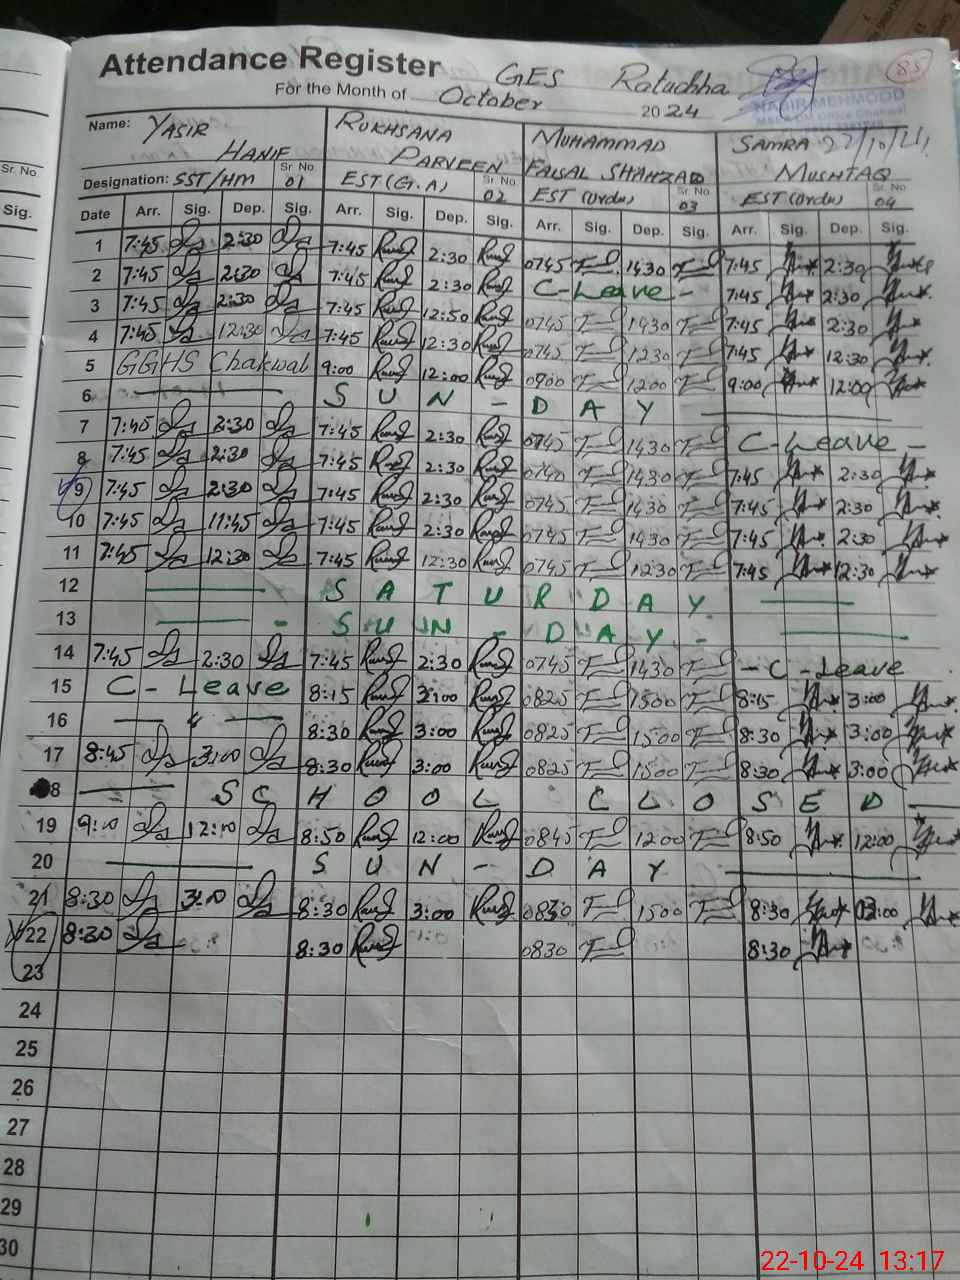 Attendance Register GES Ratuchha 85
For the Month of October 2024
NASIR MEHMOOD
Name: YASIR HANIF RUKHSANA PARVEEN MUHAMMAD FAISAL SHAHZAD SAMRA MUSHTAQ 22/10/24
Designation: SST/HM Sr. No. 01 EST (G.A) Sr. No. 02 EST (Urdu) Sr. No. 03 EST (Urdu) Sr. No. 04
Sr. No.
Sig.
Date Arr. Sig. Dep. Sig. Arr. Sig. Dep. Sig. Arr. Sig. Dep. Sig. Arr. Sig. Dep. Sig.
1 7:45 2:30 7:45 2:30 0745 1430 7:45 2:30
2 7:45 2:30 7:45 2:30 C-Leave - 7:45 2:30
3 7:45 2:30 7:45 12:50 0745 1430 7:45 2:30
4 7:45 12:30 7:45 12:30 0745 1230 7:45 12:30
5 GGHS Chakwal 9:00 12:00 0900 1200 9:00 12:00
6 SUN-DAY
7 7:45 2:30 7:45 2:30 0745 1430 C-Leave -
8 7:45 2:30 7:45 2:30 0740 1430 7:45 2:30
9 7:45 2:30 7:45 2:30 0745 1430 7:45 2:30
10 7:45 11:45 7:45 2:30 0745 1430 7:45 2:30
11 7:45 12:30 7:45 12:30 0745 1230 7:45 12:30
12 SATURDAY
13 - SUN-DAY -
14 7:45 2:30 7:45 2:30 0745 1430 -C-Leave
15 C-Leave 8:15 3:00 0825 1500 8:15 3:00
16 — " — 8:30 3:00 0825 1500 8:30 3:00
17 8:45 3:00 8:30 3:00 0825 1500 8:30 3:00
8 SCHOOL CLOSED
19 9:00 12:00 8:50 12:00 0845 1200 8:50 12:00
20 SUN-DAY
21 8:30 3:00 8:30 3:00 0830 1500 8:30 03:00
22 8:30 8:30 0830 8:30
23
24
25
26
27
28
29
30
22-10-24 13:17